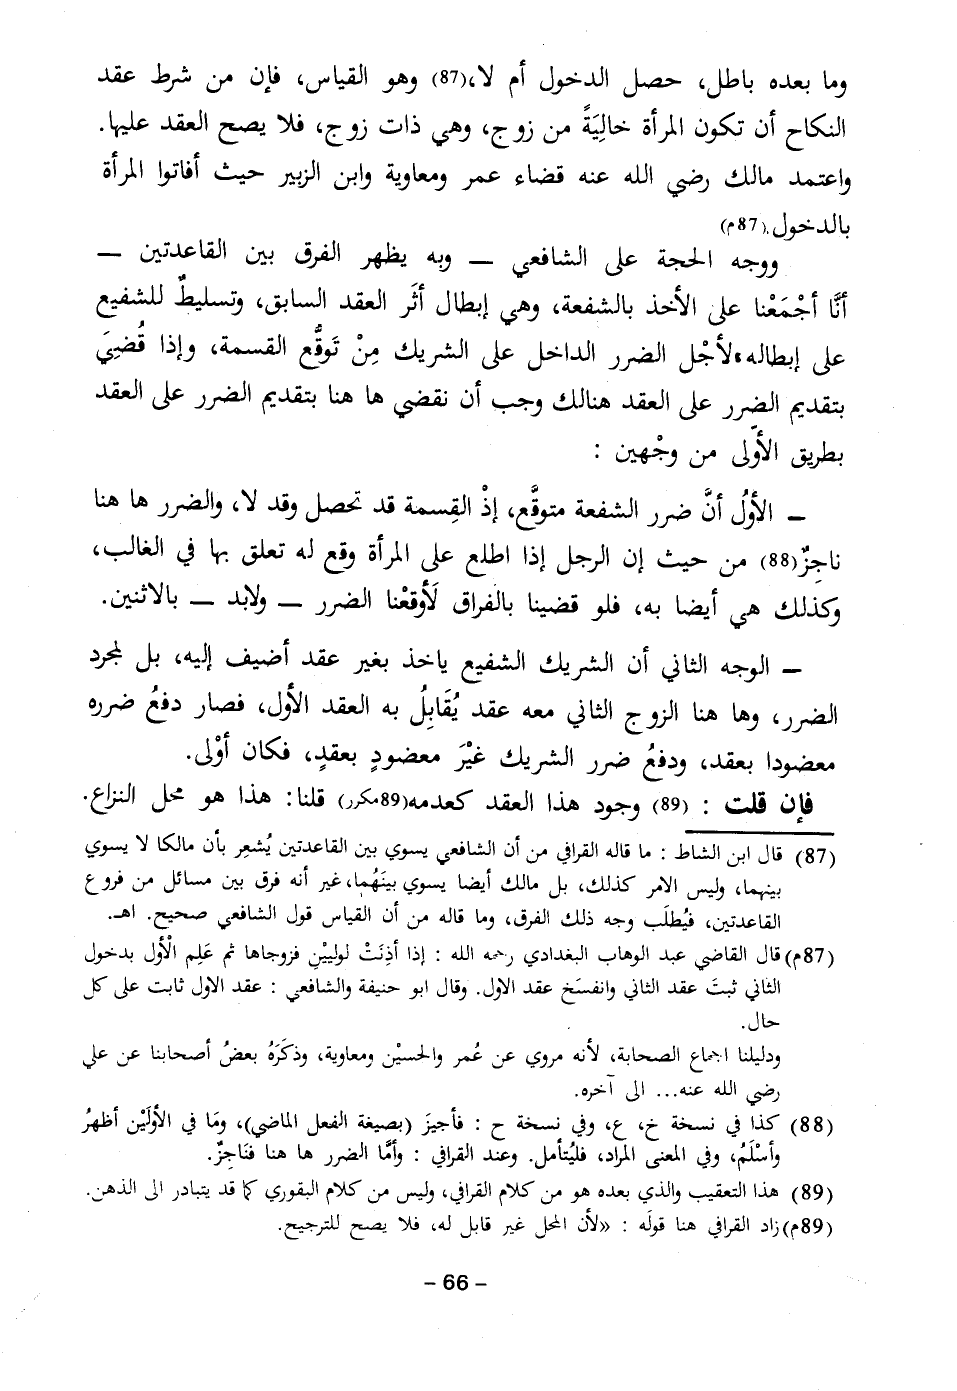 وما بعده باطل، حصل الدخول أم لا،(87) وهو القياس، فإن من شرط عقد
النكاح أن تكون المرأة خالِيَةً من زوج، وهي ذات زوج، فلا يصح العقد عليها.
واعتمد مالك رضي الله عنه قضاء عمر ومعاوية وابن الزبير حيث أفاتوا المرأة
بالدخول.(87م)
ووجه الحجة على الشافعي — وبه يظهر الفرق بين القاعدتين —
أنَّا أجْمَعْنا على الأخذ بالشفعة، وهي إبطال أثَر العقد السابق، وتسليطٌ للشفيع
على إبطاله، لأجْل الضرر الداخل على الشريك مِنْ تَوقُّع القسمة، وإذا قُضِيَ
بتقديم الضّرر على العقد هنالك وجب أن نقضي ها هنا بتقديم الضرر على العقد
بطريق الأوْلى من وجْهين :
— الأولُ أنَّ ضرر الشفعة متوقَّع، إذْ القِسمة قد تحصل وقد لا، والضرر ها هنا
ناجِزٌ(88) من حيث إن الرجل إذا اطلع على المرأة وقع له تعلق بها في الغالب،
وكذلك هي أيضا به، فلو قضينا بالفراق لَأوقعْنا الضرر — ولابد — بالاثنين.
— الوجه الثاني أن الشريك الشفيع ياخذ بغير عقد أضيف إليه، بل لمجرد
الضرر، وها هنا الزوج الثاني معه عقد يُقَابِلُ به العقد الأول، فصار دفعُ ضرره
معضودا بعقد، ودفعُ ضرر الشريك غيْرَ معضودٍ بعقدٍ، فكان أوْلى.
فإن قلت : (89) وجود هذا العقد كعدمه(89مكرر) قلنا: هذا هو محل النزاع.
(87) قال ابن الشاط : ما قاله القرافي من أن الشافعي يسوي بين القاعدتين يُشعِر بأن مالكا لا يسوي
بينهما، وليس الامر كذلك، بل مالك أيضا يسوي بينَهُما، غير أنه فرق بين مسائل من فروع
القاعدتين، فيُطلَب وجه ذلك الفرق، وما قاله من أن القياس قول الشافعي صحيح. اهـ.
(87م) قال القاضي عبد الوهاب البغدادي رحمه الله : إذا أذِنَتْ لوليَيْنِ فزوجاها ثم عَلِم الْأول بدخول
الثاني ثبتَ عقد الثاني وانفسَخ عقد الاول. وقال ابو حنيفة والشافعي : عقد الاول ثابت على كل
حال.
ودليلنا اجماع الصحابة، لأنه مروي عن عُمر والحسيْن ومعاوية، وذكَرَهُ بعضُ أصحابنا عن علي
رضي الله عنه... الى آخره.
(88) كذا في نسخة خ، ع، وفي نسخة ح : فأجيزَ (بصيغة الفعل الماضي)، ومَا في الأولَيْن أظهرُ
وأسْلَمُ، وفي المعنى المراد، فليُتأمل. وعند القرافي : وأمَّا الضرر ها هنا فنَاجِزٌ.
(89) هذا التعقيب والذي بعده هو من كلام القرافي، وليس من كلام البقوري كما قد يتبادر الى الذهن.
(89م) زاد القرافي هنا قولَه : «لأن المحل غير قابل له، فلا يصح للترجيح.
- 66 -